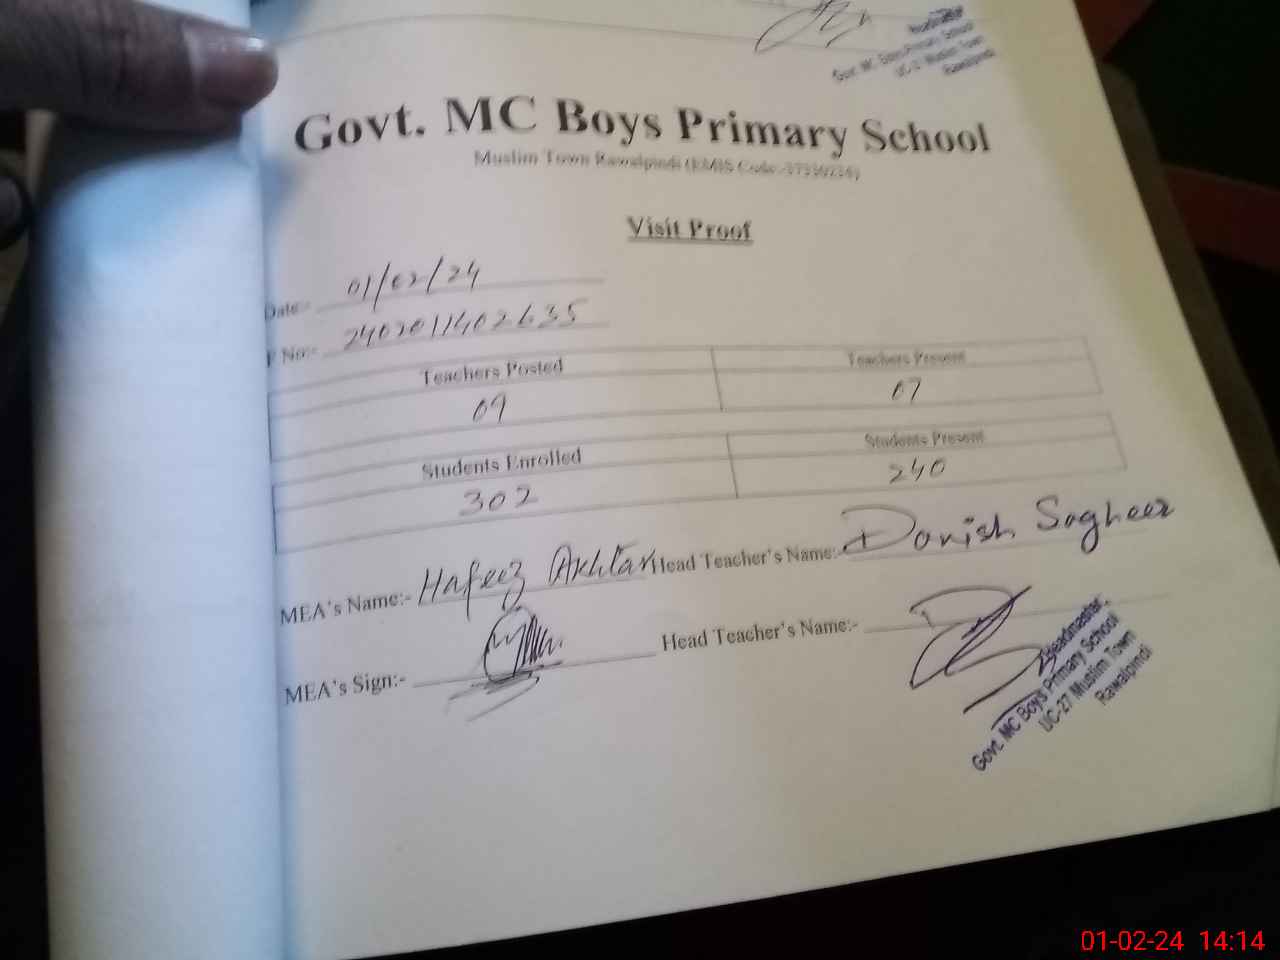 Govt. MC Boys Primary School
UC-27 Muslim Town
Rawalpindi
Govt. MC Boys Primary School
Muslim Town Rawalpindi (EMIS Code:-
Visit Proof
Date:- 01/02/24
F No:- 2402011402635
Teachers Posted Teachers Present
09 07
Students Enrolled Students Present
302 240
MEA's Name:- Hafeez Akhtar Head Teacher's Name:- Danish Sagheer
MEA's Sign:- Head Teacher's Name:-
Headmaster
Govt. MC Boys Primary School
UC-27 Muslim Town
Rawalpindi
01-02-24 14:14